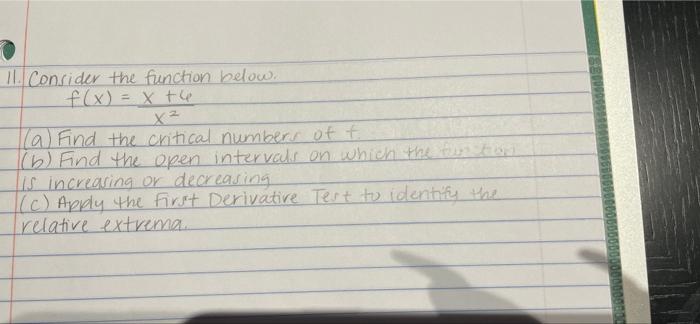 11. Consider the function below.
f(x) = x + 6
x²
(a) Find the critical numbers of f.
(b) Find the open intervals on which the function
is increasing or decreasing
(c) Apply the First Derivative Test to identify the
relative extrema.